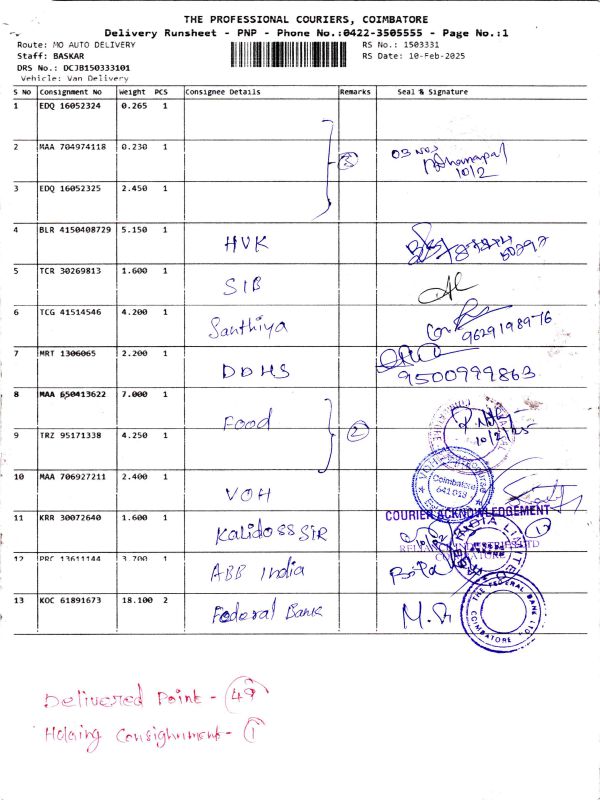 THE PROFESSIONAL COURIERS, COIMBATORE
Delivery Runsheet - PNP - Phone No.:0422-3505555 - Page No.:1
Route: MO AUTO DELIVERY RS No.: 1503331
Staff: BASKAR RS Date: 10-Feb-2025
DRS No.: DCJB150333101
Vehicle: Van Delivery
S No Consignment No Weight PCS Consignee Details Remarks Seal & Signature
1 EDQ 16052324 0.265 1
2 MAA 704974118 0.230 1 3 03 Nos
10/2
3 EDQ 16052325 2.450 1
4 BLR 4150408729 5.150 1 HVK
5 TCR 30269813 1.600 1 SIB
6 TCG 41514546 4.200 1 Santhiya 9629198976
7 MRT 1306065 2.200 1 DDHS 9500999863
8 MAA 650413622 7.000 1 Food 2
10/2/25
9 TRZ 95171338 4.250 1
10 MAA 706927211 2.400 1 VOH Coimbatore
641 013
11 KRR 30072640 1.600 1 Kalidoss SIR COURIER ACKNOWLEDGEMENT
12 PRC 13611144 3.700 1 ABB India
13 KOC 61891673 18.100 2 Federal Bank THE FEDERAL BANK LTD COIMBATORE
Delivered Point - 49
Holding Consignment - 1